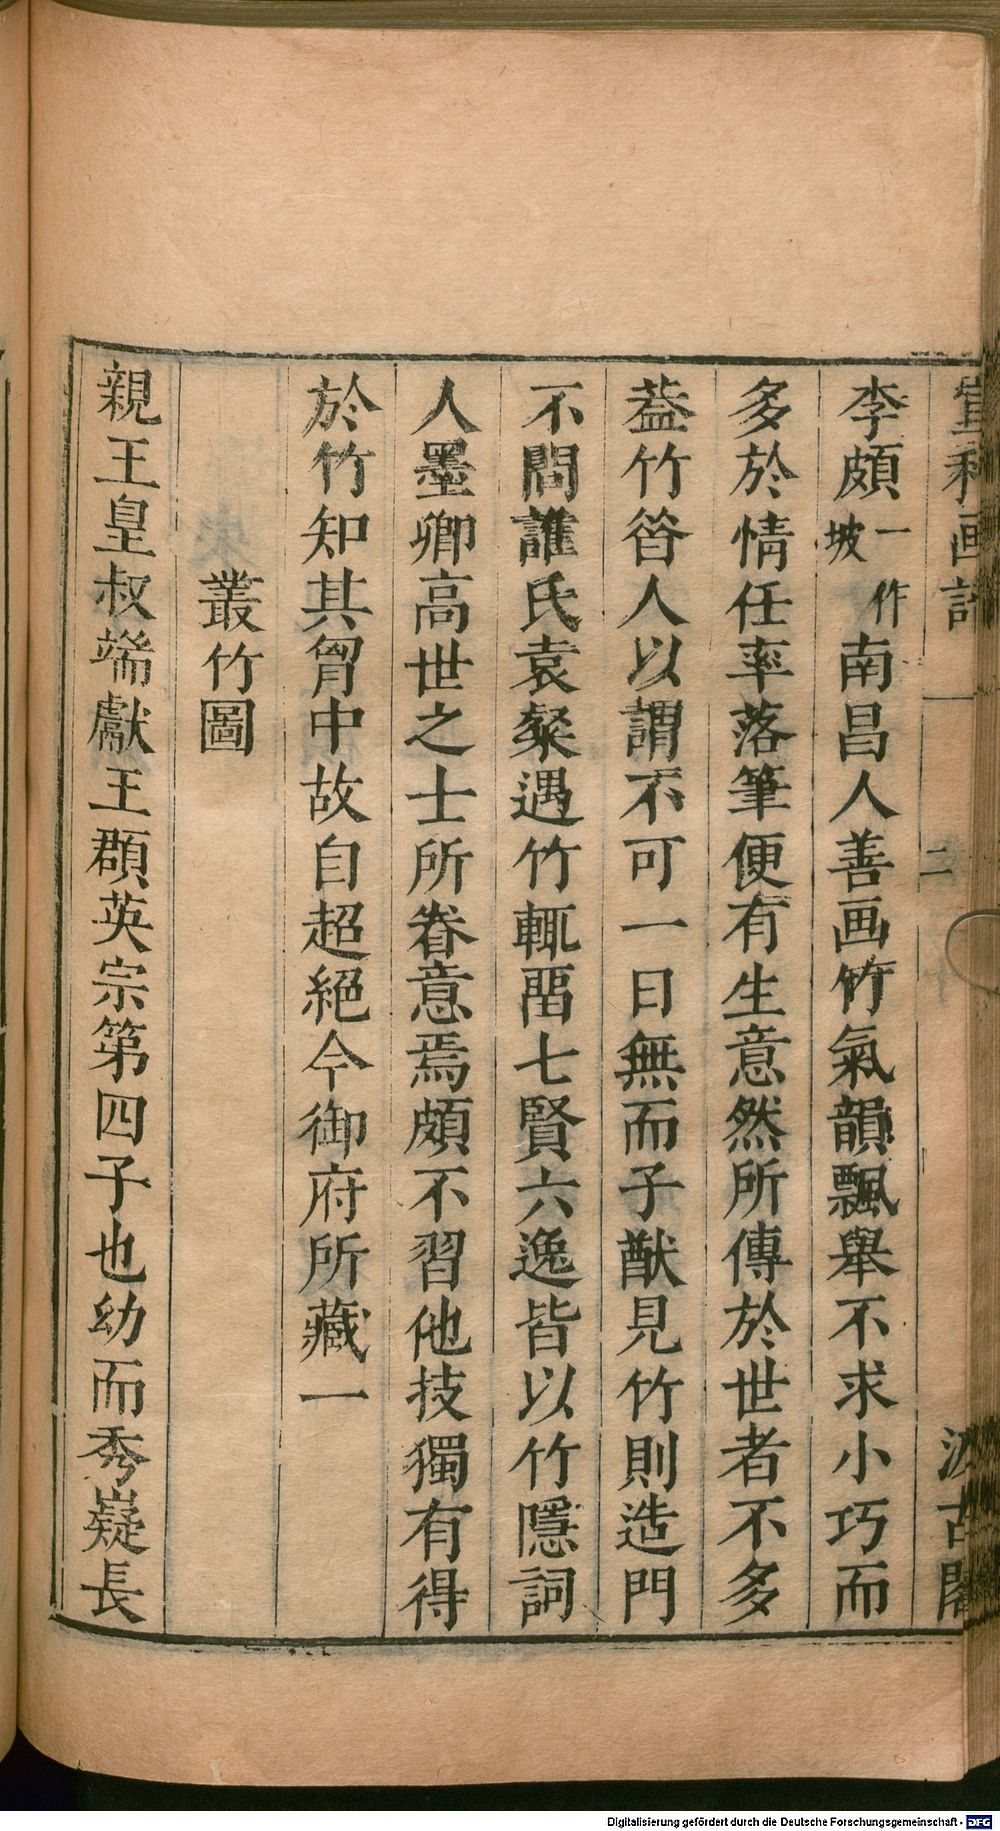 宣和画譜 二 汲古閣
李頗一作坡南昌人善画竹氣韻飄舉不求小巧而
多於情任率落筆便有生意然所傳於世者不多
葢竹昝人以謂不可一日無而子猷見竹則造門
不問誰氏袁粲遇竹輒畱七賢六逸皆以竹隱詞
人墨卿高世之士所眷意焉頗不習他技獨有得
於竹知其胷中故自超絕今御府所藏一
叢竹圖
親王皇叔端獻王頵英宗第四子也幼而秀嶷長
Digitalisierung gefördert durch die Deutsche Forschungsgemeinschaft - DFG